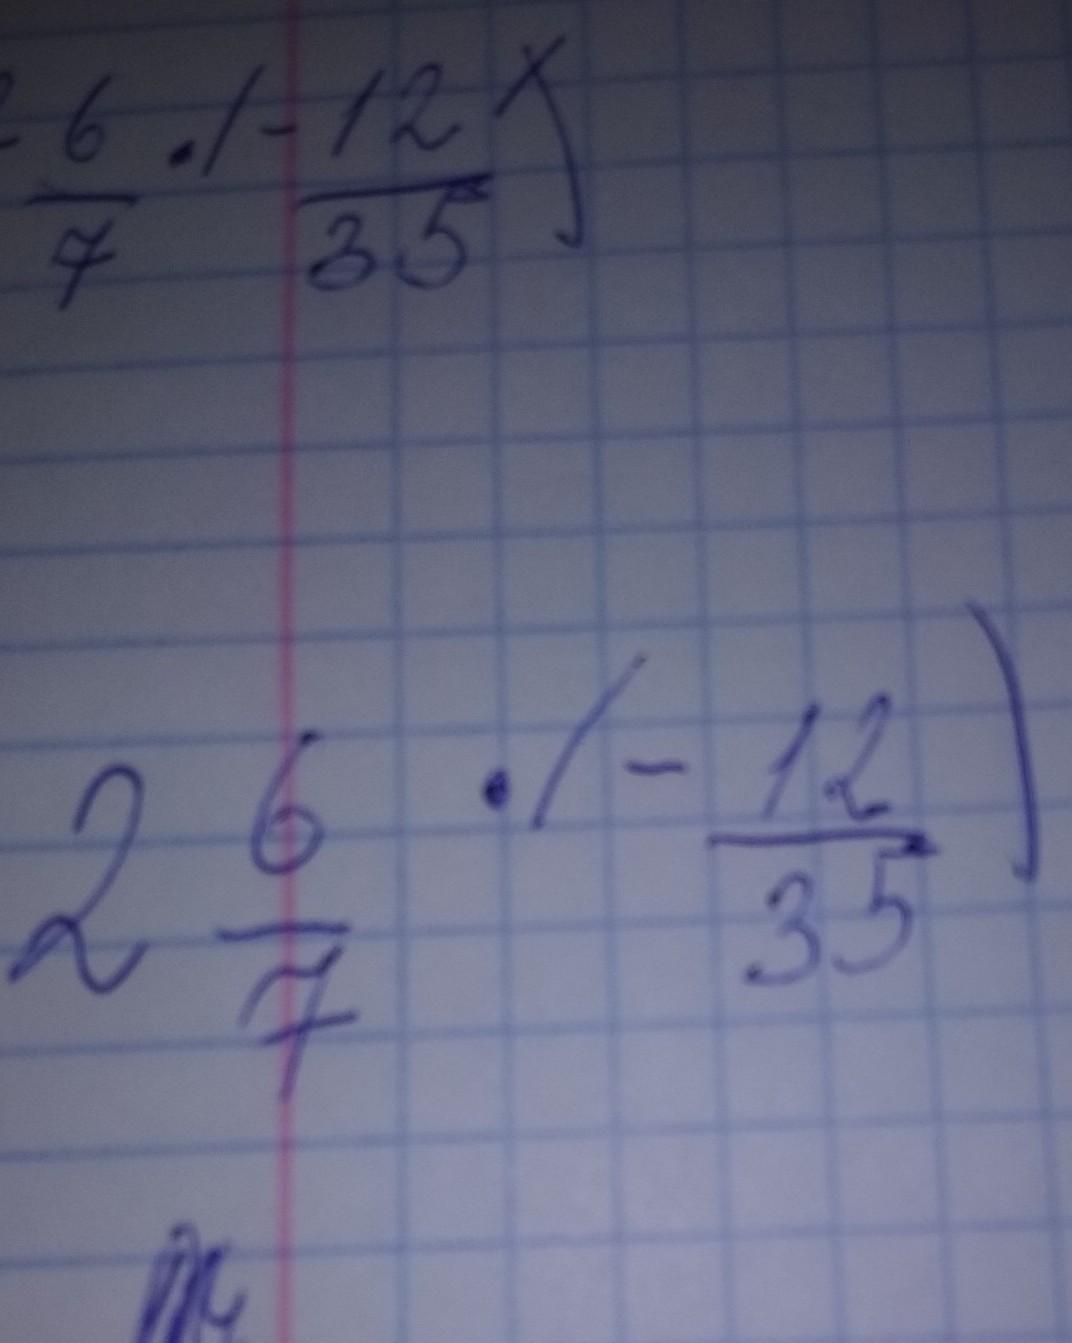 2 6/7 · (- 12/35)
2 6/7 · (- 12/35)